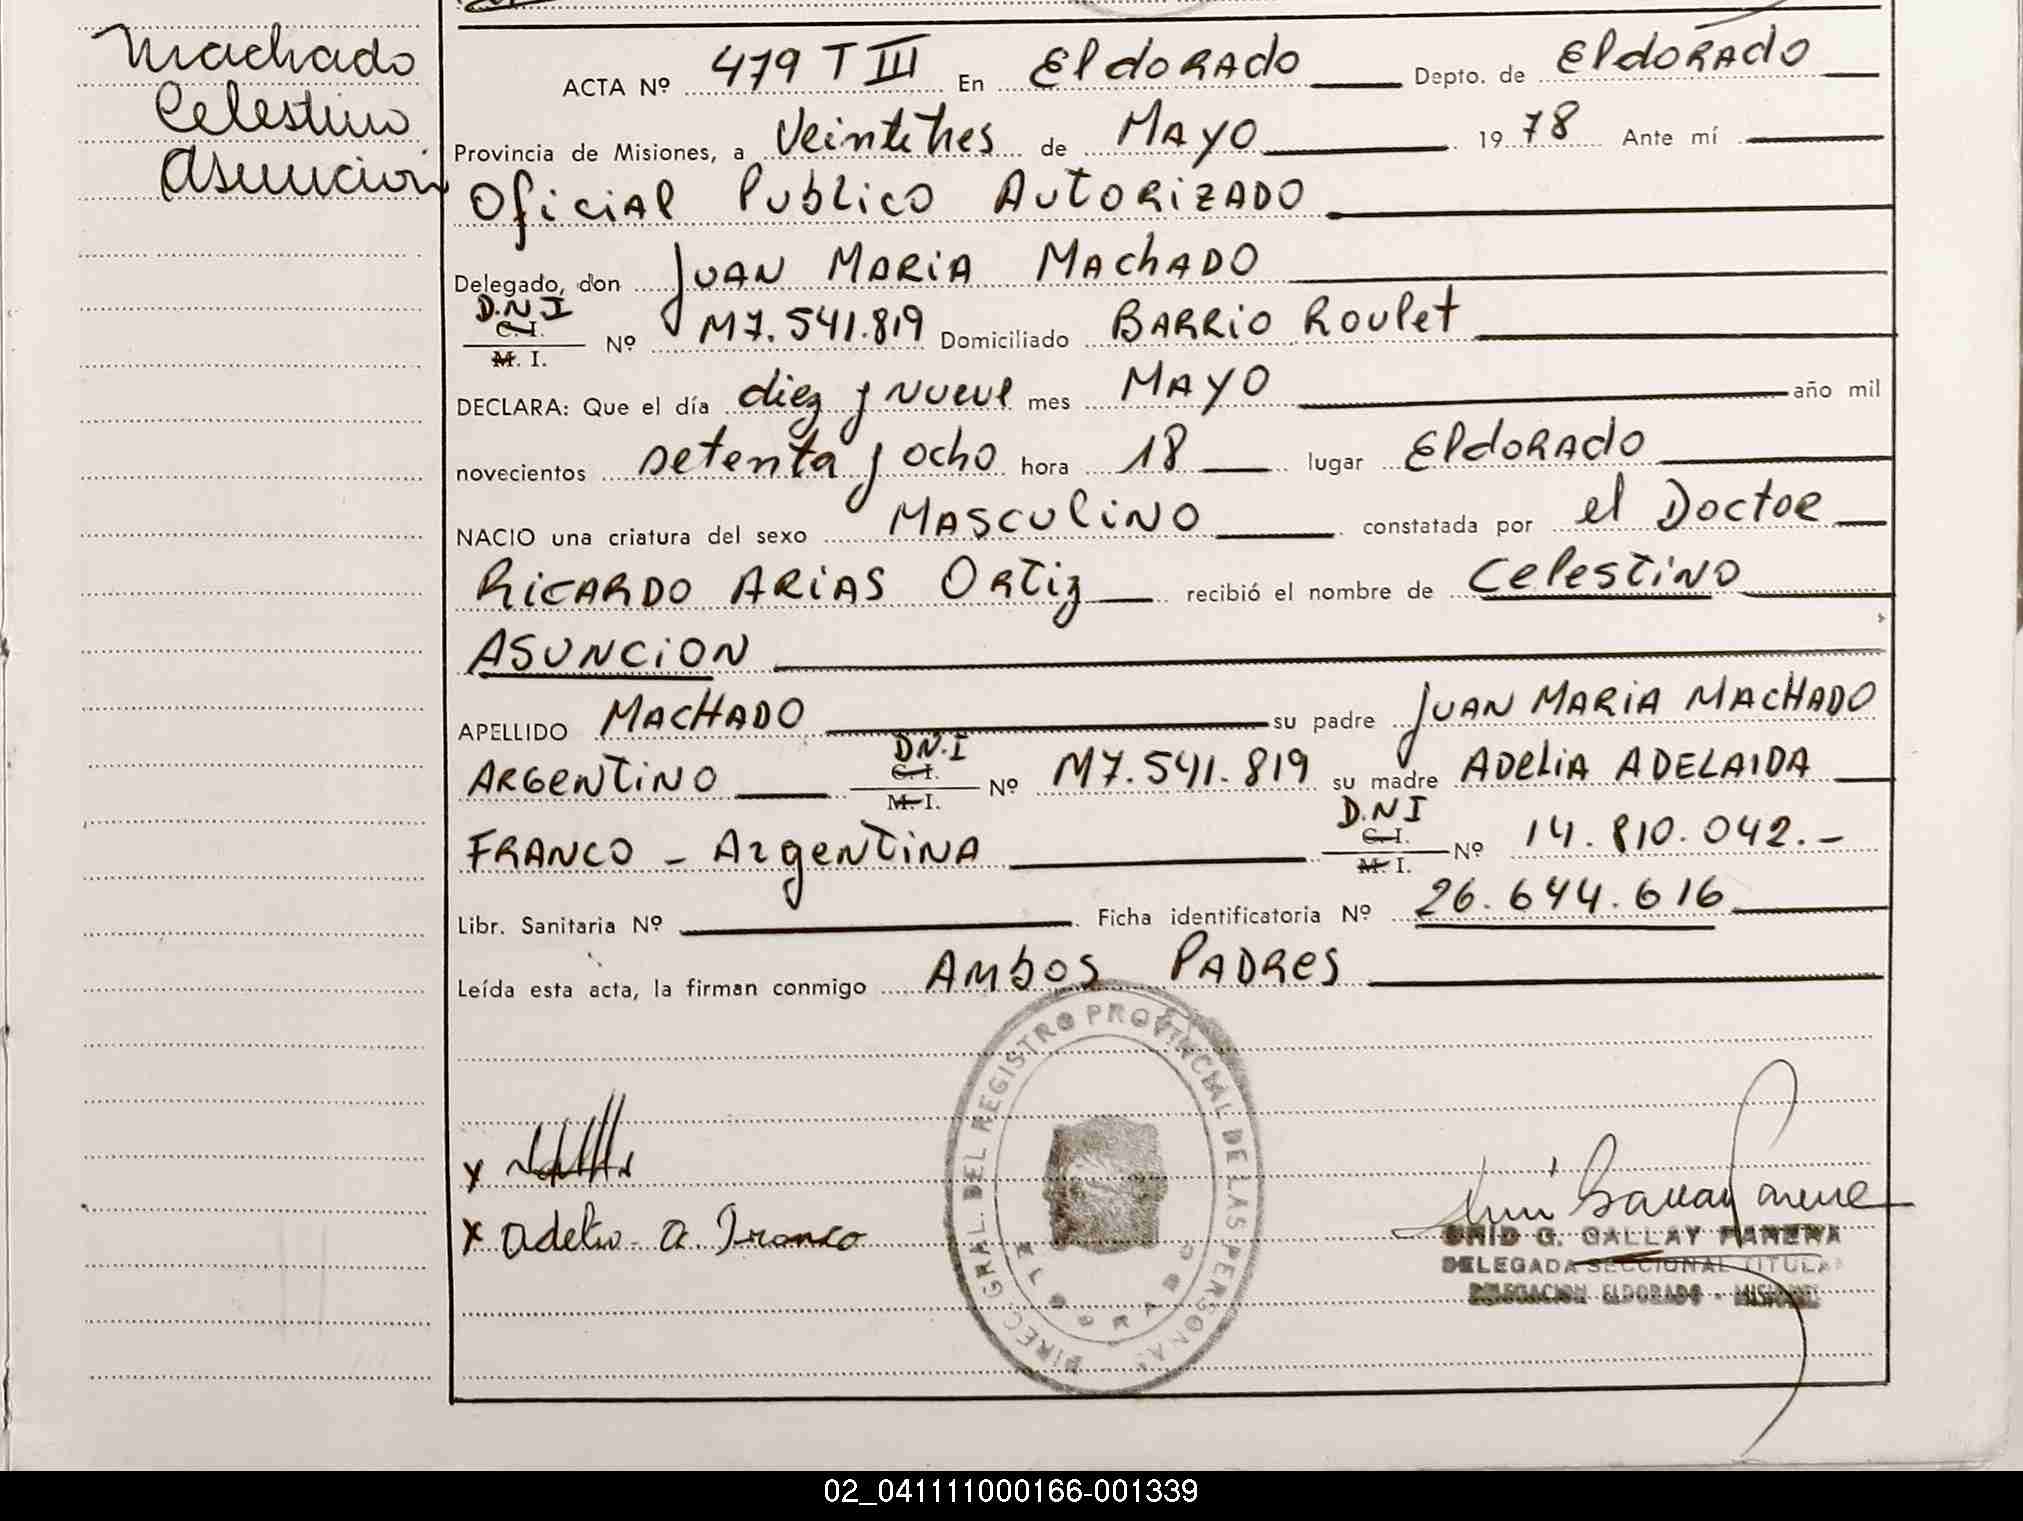 Machado
Celestino
Asuncion
ACTA Nº 479 T III En Eldorado Depto. de Eldorado
Provincia de Misiones, a Veintitres de Mayo 19 78 Ante mí
Oficial Publico Autorizado
Delegado, don Juan Maria Machado
D.N.I
C. I.
M. I. Nº M7.541.819 Domiciliado Barrio Roulet
DECLARA: Que el día diez y nueve mes Mayo año mil
novecientos setenta y ocho hora 18 lugar Eldorado
NACIO una criatura del sexo Masculino constatada por el Doctor
Ricardo Arias Ortiz recibió el nombre de Celestino
Asuncion
APELLIDO Machado su padre Juan Maria Machado
Argentino D.N.I C. I. M. I. Nº M7.541.819 su madre Adelia Adelaida
Franco - Argentina D.N.I C. I. M. I. Nº 14.810.042.-
Libr. Sanitaria Nº Ficha identificatoria Nº 26.644.616
Leída esta acta, la firman conmigo Ambos Padres
DIREC. GRAL. DEL REGISTRO PROVINCIAL DE LAS PERSONAS
ELDORADO
x
x Adelia A. Franco
G. GALLAY
DELEGADA SECCIONAL TITULAR
DELEGACION ELDORADO - MISIONES
02_041111000166-001339